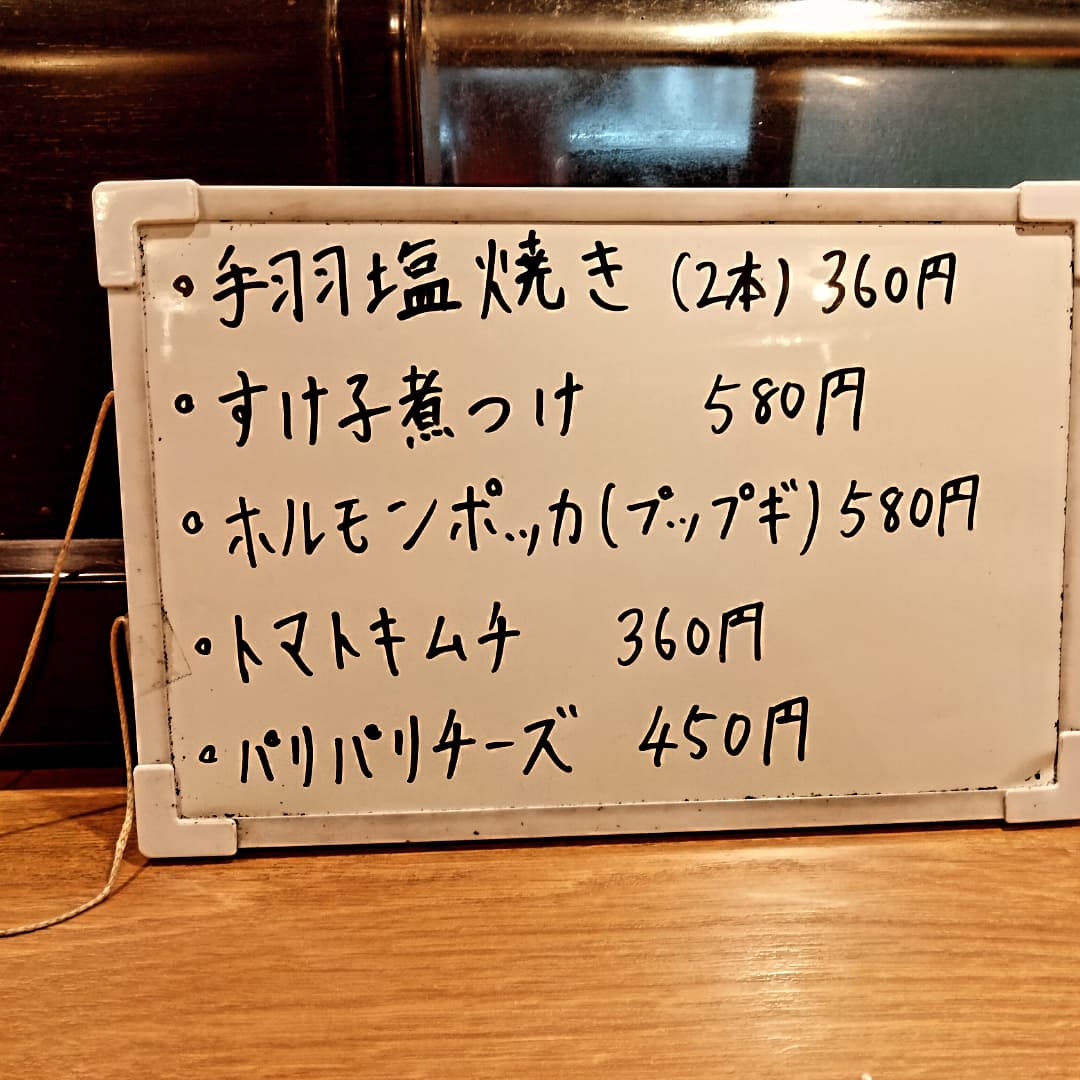 ・手羽塩焼き (2本) 360円
・すけ子煮つけ 580円
・ホルモンポッカ(プップギ) 580円
・トマトキムチ 360円
・パリパリチーズ 450円